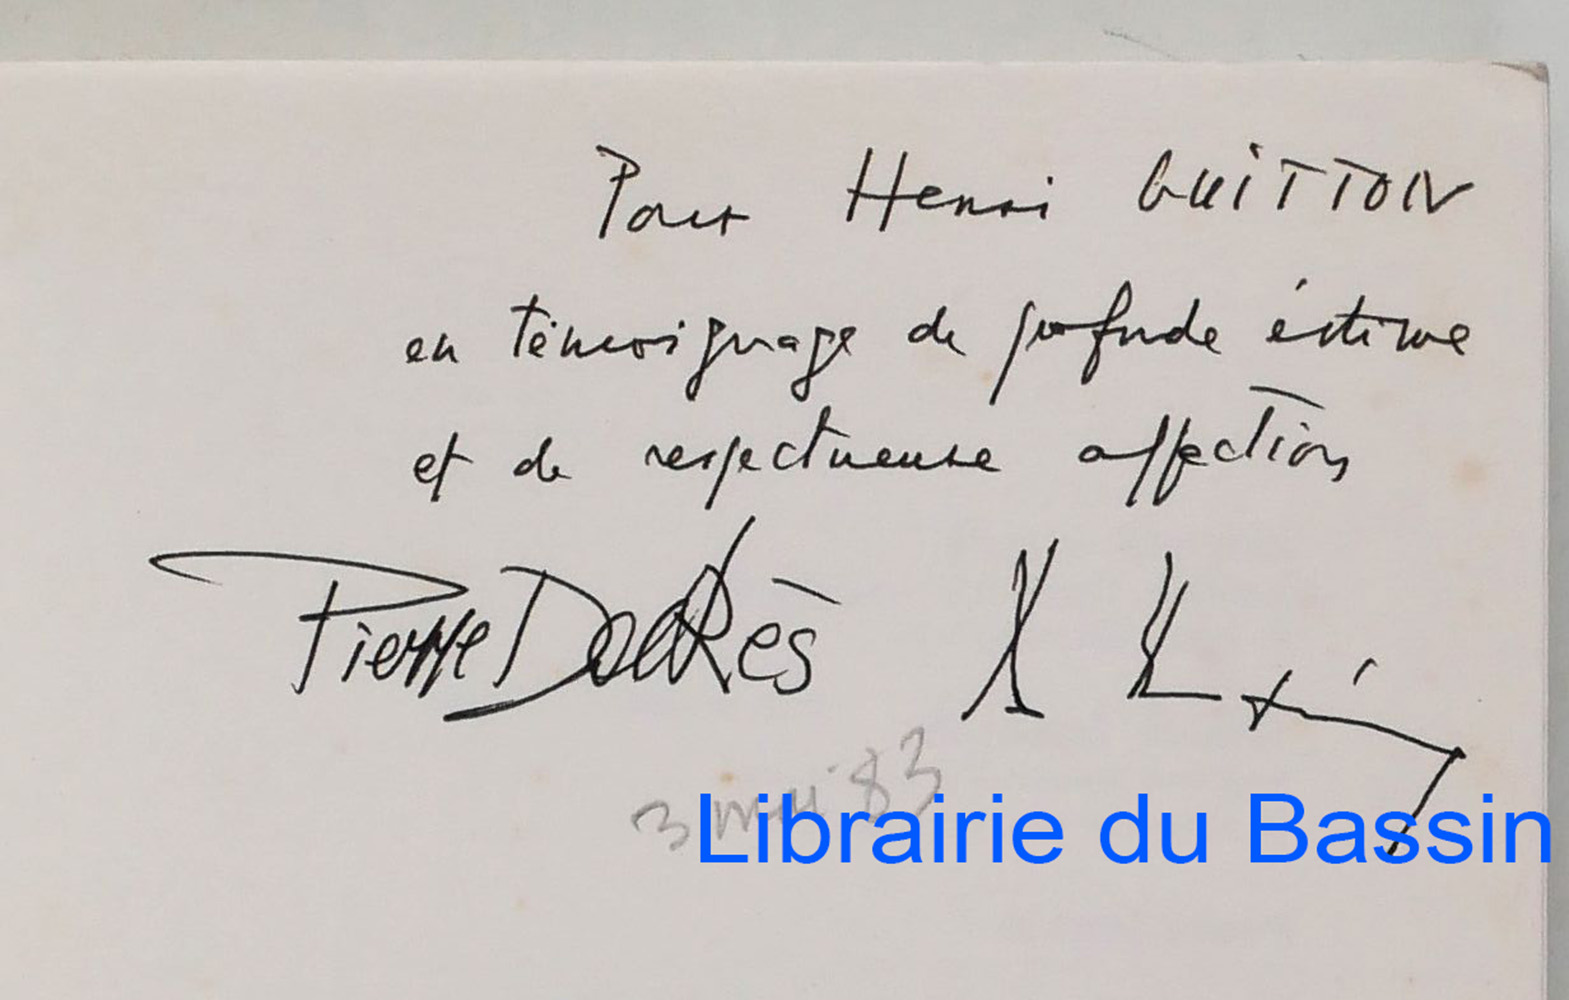 Pour Henri GUITTON
en témoignage de profonde estime
et de respectueuse affection
Pierre Dockès
3 mai 83
Librairie du Bassin